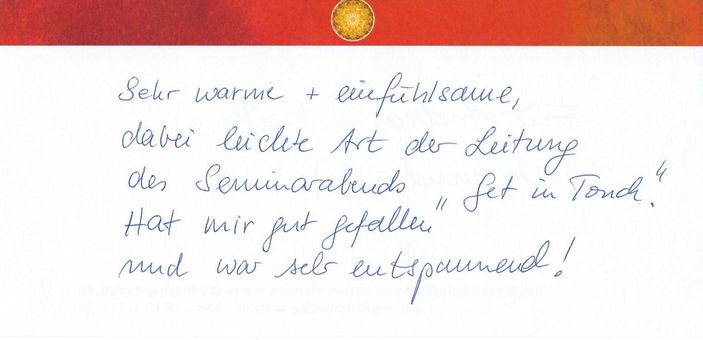 Sehr warme + einfühlsame,
dabei leichte Art der Leitung
des Seminarabends „Get in Touch".
Hat mir gut gefallen
und war sehr entspannend!